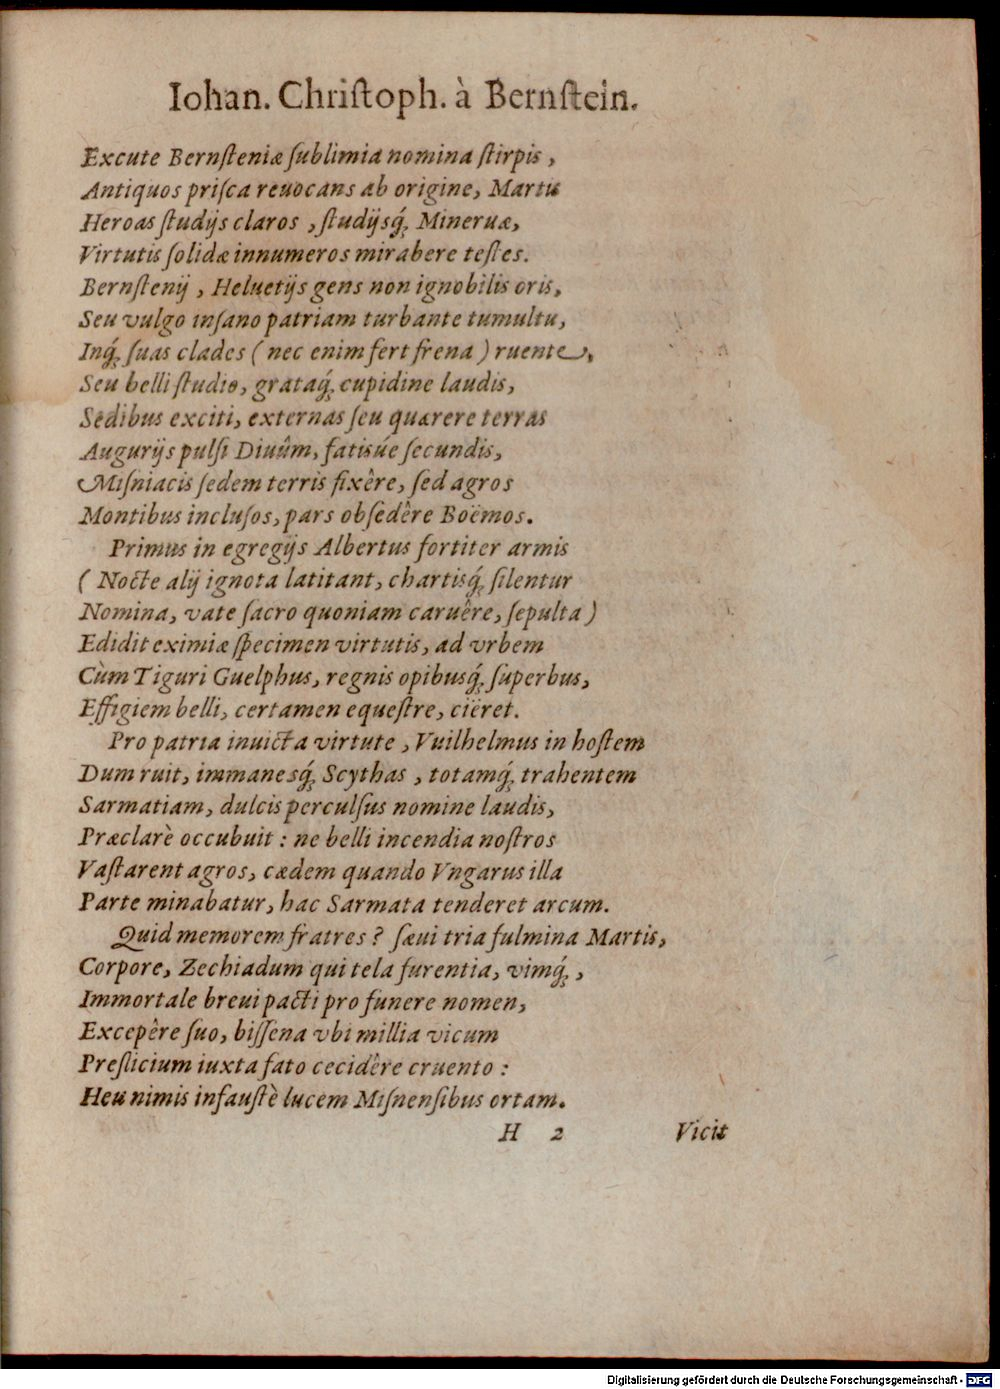 Iohan. Chriſtoph. à Bernſtein.
Excute Bernſteniæ ſublimia nomina ſtirpis,
Antiquos priſca reuocans ab origine, Martis
Heroas ſtudijs claros, ſtudijsq́; Mineruæ,
Virtutis ſolidæ innumeros mirabere teſtes.
Bernſtenij, Heluetijs gens non ignobilis oris,
Seu vulgo inſano patriam turbante tumultu,
Inq́; ſuas clades (nec enim fert frena) ruente,
Seu belli ſtudio, grataq́; cupidine laudis,
Sedibus exciti, externas ſeu quærere terras
Augurijs pulſi Diuûm, fatisúe ſecundis,
Miſniacis ſedem terris fixêre, ſed agros
Montibus incluſos, pars obſedêre Boëmos.
Primus in egregijs Albertus fortiter armis
(Nocte alij ignota latitant, chartisq́; ſilentur
Nomina, vate ſacro quoniam caruêre, ſepulta)
Edidit eximiæ ſpecimen virtutis, ad vrbem
Cùm Tiguri Guelphus, regnis opibusq́; ſuperbus,
Effigiem belli, certamen equeſtre, ciëret.
Pro patria inuicta virtute, Vuilhelmus in hoſtem
Dum ruit, immanesq́; Scythas, totamq́; trahentem
Sarmatiam, dulcis perculſus nomine laudis,
Præclarè occubuit: ne belli incendia noſtros
Vaſtarent agros, cædem quando Vngarus illa
Parte minabatur, hac Sarmata tenderet arcum.
Quid memorem fratres? ſæui tria fulmina Martis,
Corpore, Zechiadum qui tela furentia, vimq́;,
Immortale breui pacti pro funere nomen,
Excepêre ſuo, biſſena vbi millia vicum
Preſlicium iuxta fato cecidêre cruento:
Heu nimis infauſtè lucem Miſnenſibus ortam.
H 2 Vicit
Digitalisierung gefördert durch die Deutsche Forschungsgemeinschaft - DFG